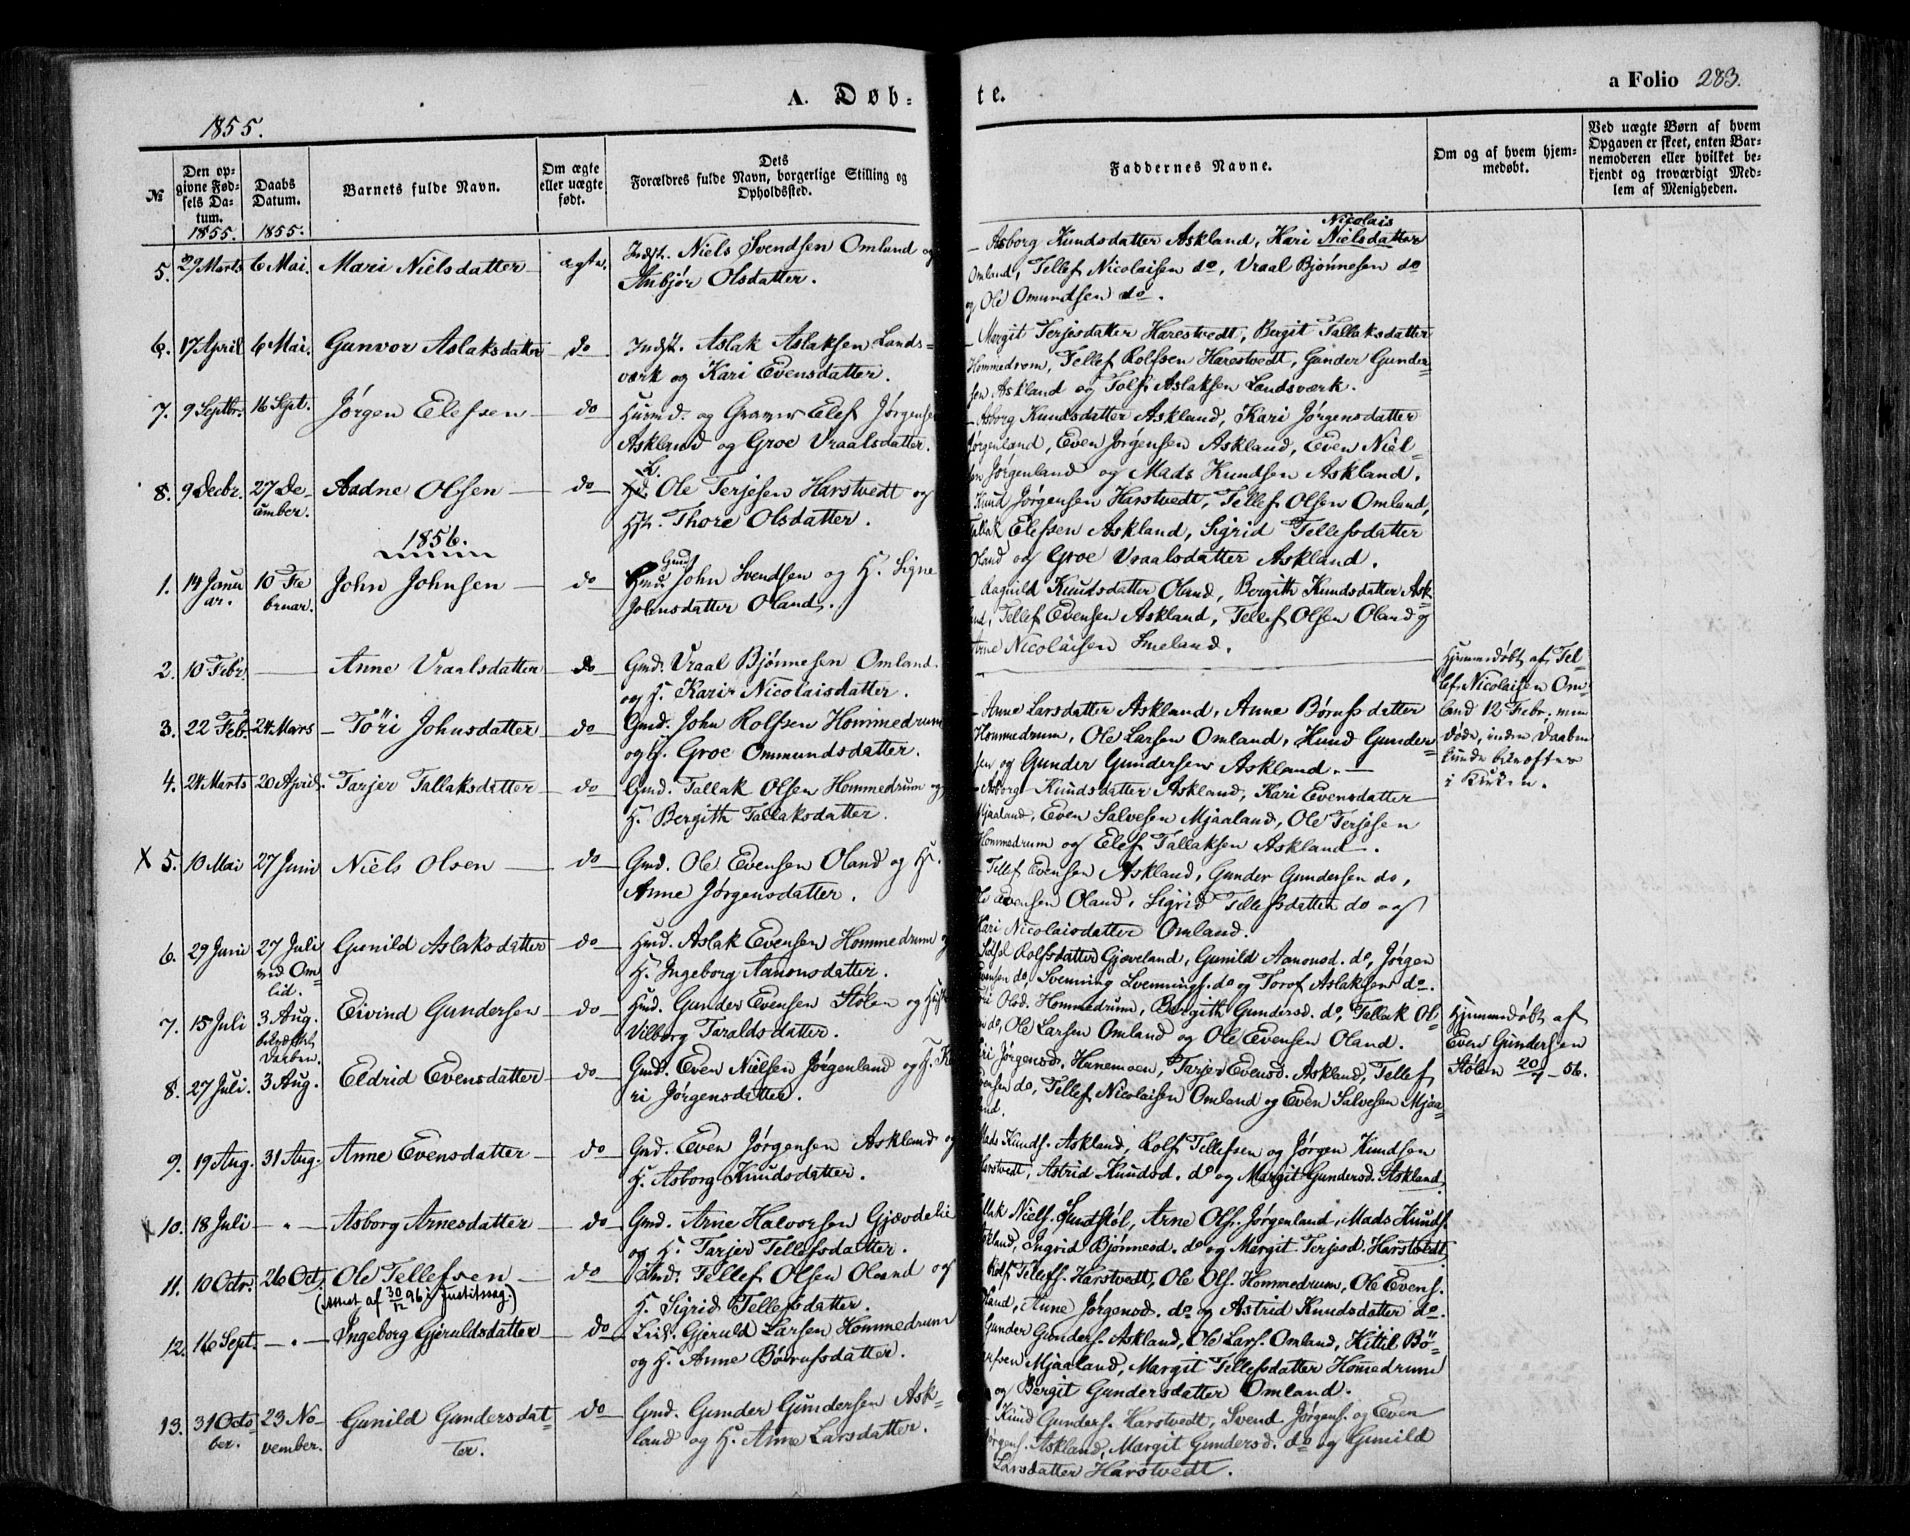 A. Døb-
te.
a Folio 283.
1855.
№
Den opgivne Fødsels Datum.
Daabs Datum.
Barnets fulde Navn.
Om ægte eller uægte født.
Dets Forældres fulde Navn, borgerlige Stilling og Opholdssted.
Faddernes Navne.
Om og af hvem hjemmedøbt.
Ved uægte Børn af hvem Opgaven er skeet, enten Barnemoderen eller hvilket bekjendt og troværdigt Medlem af Menigheden.
1855. 1855.
5. 29 Marts 6 Mai. Mari Nielsdatter ægte. Indst. Niels Svendsen Omland og
Anbjør Olsdatter.
Nicolais
Asborg Knudsdatter Askland, Kari Nielsdatter
Omland, Tellef Nicolaisen do, Vraal Bjønnesen do
og Ole Omundsen do.
6. 17 April 6 Mai. Gunvor Aslaksdatter do Indst. Aslak Aslaksen Lands-
værk og Kari Evensdatter.
Margit Terjesdatter Harestvedt, Bergit Tallaksdatter
Hommedrom, Tellef Rolfsen Harestvedt, Gunder Gunder-
sen Askland og Tolf Aslaksen Landsværk.
7. 9 Septbr. 16 Sept. Jørgen Elefsen do Husmd. og Graver Elef Jørgensen
Askland og Groe Vraalsdatter.
Asborg Knudsdatter Askland, Kari Jørgensdatter
Jørgenland, Even Jørgensen Askland, Even Niel-
sen Jørgenland og Mads Knudsen Askland.
8. 9 Decbr. 27 De-
cember. Aadne Olsen do Ole Terjesen Harstvedt og
Hst. Thore Olsdatter.
Knud Jørgensen Harstvedt, Tellef Olsen Omland,
Tallak Elefsen Askland, Sigrid Tellefsdatter
Oland og Groe Vraalsdatter Askland.
1856.
1. 14 Janu-
ar. 10 Fe-
bruar. John Johnsen do Gmd. John Svendsen og H. Signe
Johnsdatter Oland.
Ragnild Knudsdatter Oland, Bergith Knudsdatter Ask-
land, Tellef Evensen Askland, Tellef Olsen Oland og
Arne Nicolaisen Smeland.
2. 10 Febr. — Anne Vraalsdatter do Gmd. Vraal Bjønnesen Omland
og H. Kari Nicolaisdatter.
Hjemmedøbt af Tel-
lef Nicolaisen Om-
land 12 Febr. men
døde, inden Daaben
kunde bekræftes
i Kirken.
3. 22 Feb. 24 Mars Töri Johnsdatter do Gmd. John Rolfsen Hommedrum
og H. Groe Ommundsdatter.
Anne Larsdatter Askland, Anne Børufsdatter
Hommedrum, Ole Larsen Omland, Knud Gunder-
sen og Gunder Gundersen Askland.
4. 24 Marts 20 April. Tarjer Tallaksdatter do Gmd. Tallak Olsen Hommedrum og
H. Bergith Tallaksdatter.
Asborg Knudsdatter Askland, Kari Evensdatter
Mjaaland, Even Salvesen Mjaaland, Ole Terjesen
Hommedrum og Elef Tallaksen Askland.
X 5. 10 Mai 27 Juni Niels Olsen do Gmd. Ole Evensen Oland og H.
Anne Jørgensdatter.
Tellef Evensen Askland, Gunder Gundersen do,
Ole Evensen Oland, Sigrid Tellefsdatter do og
Kari Nicolaisdatter Omland.
6. 29 Juni 27 Juli
ved Om-
lid. Gunild Aslaksdatter do Hmd. Aslak Evensen Hommedrum og
H. Ingeborg Aanonsdatter.
Sidsel Rolfsdatter Gjøveland, Gunild Aanonsd. do, Jørgen
Evensen do, Svenning Svennings. do og Torof Aslaksen do.
7. 15 Juli 3 Aug.
bekræftet
Daaben. Eivind Gundersen do Hmd. Gunder Evensen Stølen og Hust
Vilborg Taraldsdatter.
Töri Olsd. Hommedrum, Bergith Gundersd. do, Tellak Ol-
sen do, Ole Larsen Omland og Ole Evensen Oland.
Hjemmedøbt af
Even Gundersen
Stølen 20/7 - 56.
8. 27 Juli. 3 Aug. Eldrid Evensdatter do Gmd. Even Nielsen Jørgenland og H. Ka-
ri Jørgensdatter.
Kari Jørgensd. Hanemoen, Tarjer Evensd. Askland, Tellef
Evensen do, Tellef Nicolaisen Omland og Even Salvesen Mjaa-
land.
9. 19 Aug. 31 Aug. Anne Evensdatter do Gmd. Even Jørgensen Askland og
H. Asborg Knudsdatter.
Mads Knuds. Askland, Rolf Tellefsen og Jørgen Knudsen
Harstvedt, Astrid Knudsd. do og Margit Gundersd. Askland
X 10. 18 Juli — " — Asborg Arnesdatter do Gmd. Arne Halvorsen Gjævdelie
og H. Tarjer Tellefsdatter.
Aslak Niels. Sundstøl, Arne Ols. Jørgenland, Mads Knuds.
Askland, Ingrid Bjønnesd. do og Margit Terjesd. Harstvedt
11. 10 Octr. 26 Oct. Ole Tellefsen do Gmd. Tellef Olsen Oland og
H. Sigrid Tellefsdatter.
(Attest af 30/12 96 i Justitssag.)
Rolf Tellefs. Harstvedt, Ole Ols. Hommedrum, Ole Evens.
Oland, Anne Jørgensd. do og Astrid Knudsdatter do.
12. 16 Sept. — " — Ingeborg Gjeruldsdatter do Lid. Gjeruld Larsen Hommedrum
og H. Anne Børufsdatter.
Gunder Gunders. Askland, Ole Lars. Omland, Kittil Bö-
rufsen Mjaaland, Margit Tellefsdatter Homedrum
og Bergit Gundersdatter Omland.
13. 31 Octo-
ber. 23 No-
vember. Gunild Gundersdat-
ter. do Gmd. Gunder Gundersen Ask-
land og H. Anne Larsdatter.
Knud Gunders. Harstvedt, Svend Jørgens. og Even
Jørgens. Askland, Margit Gundersd. do og Gunild
Larsdatter Harstvedt.